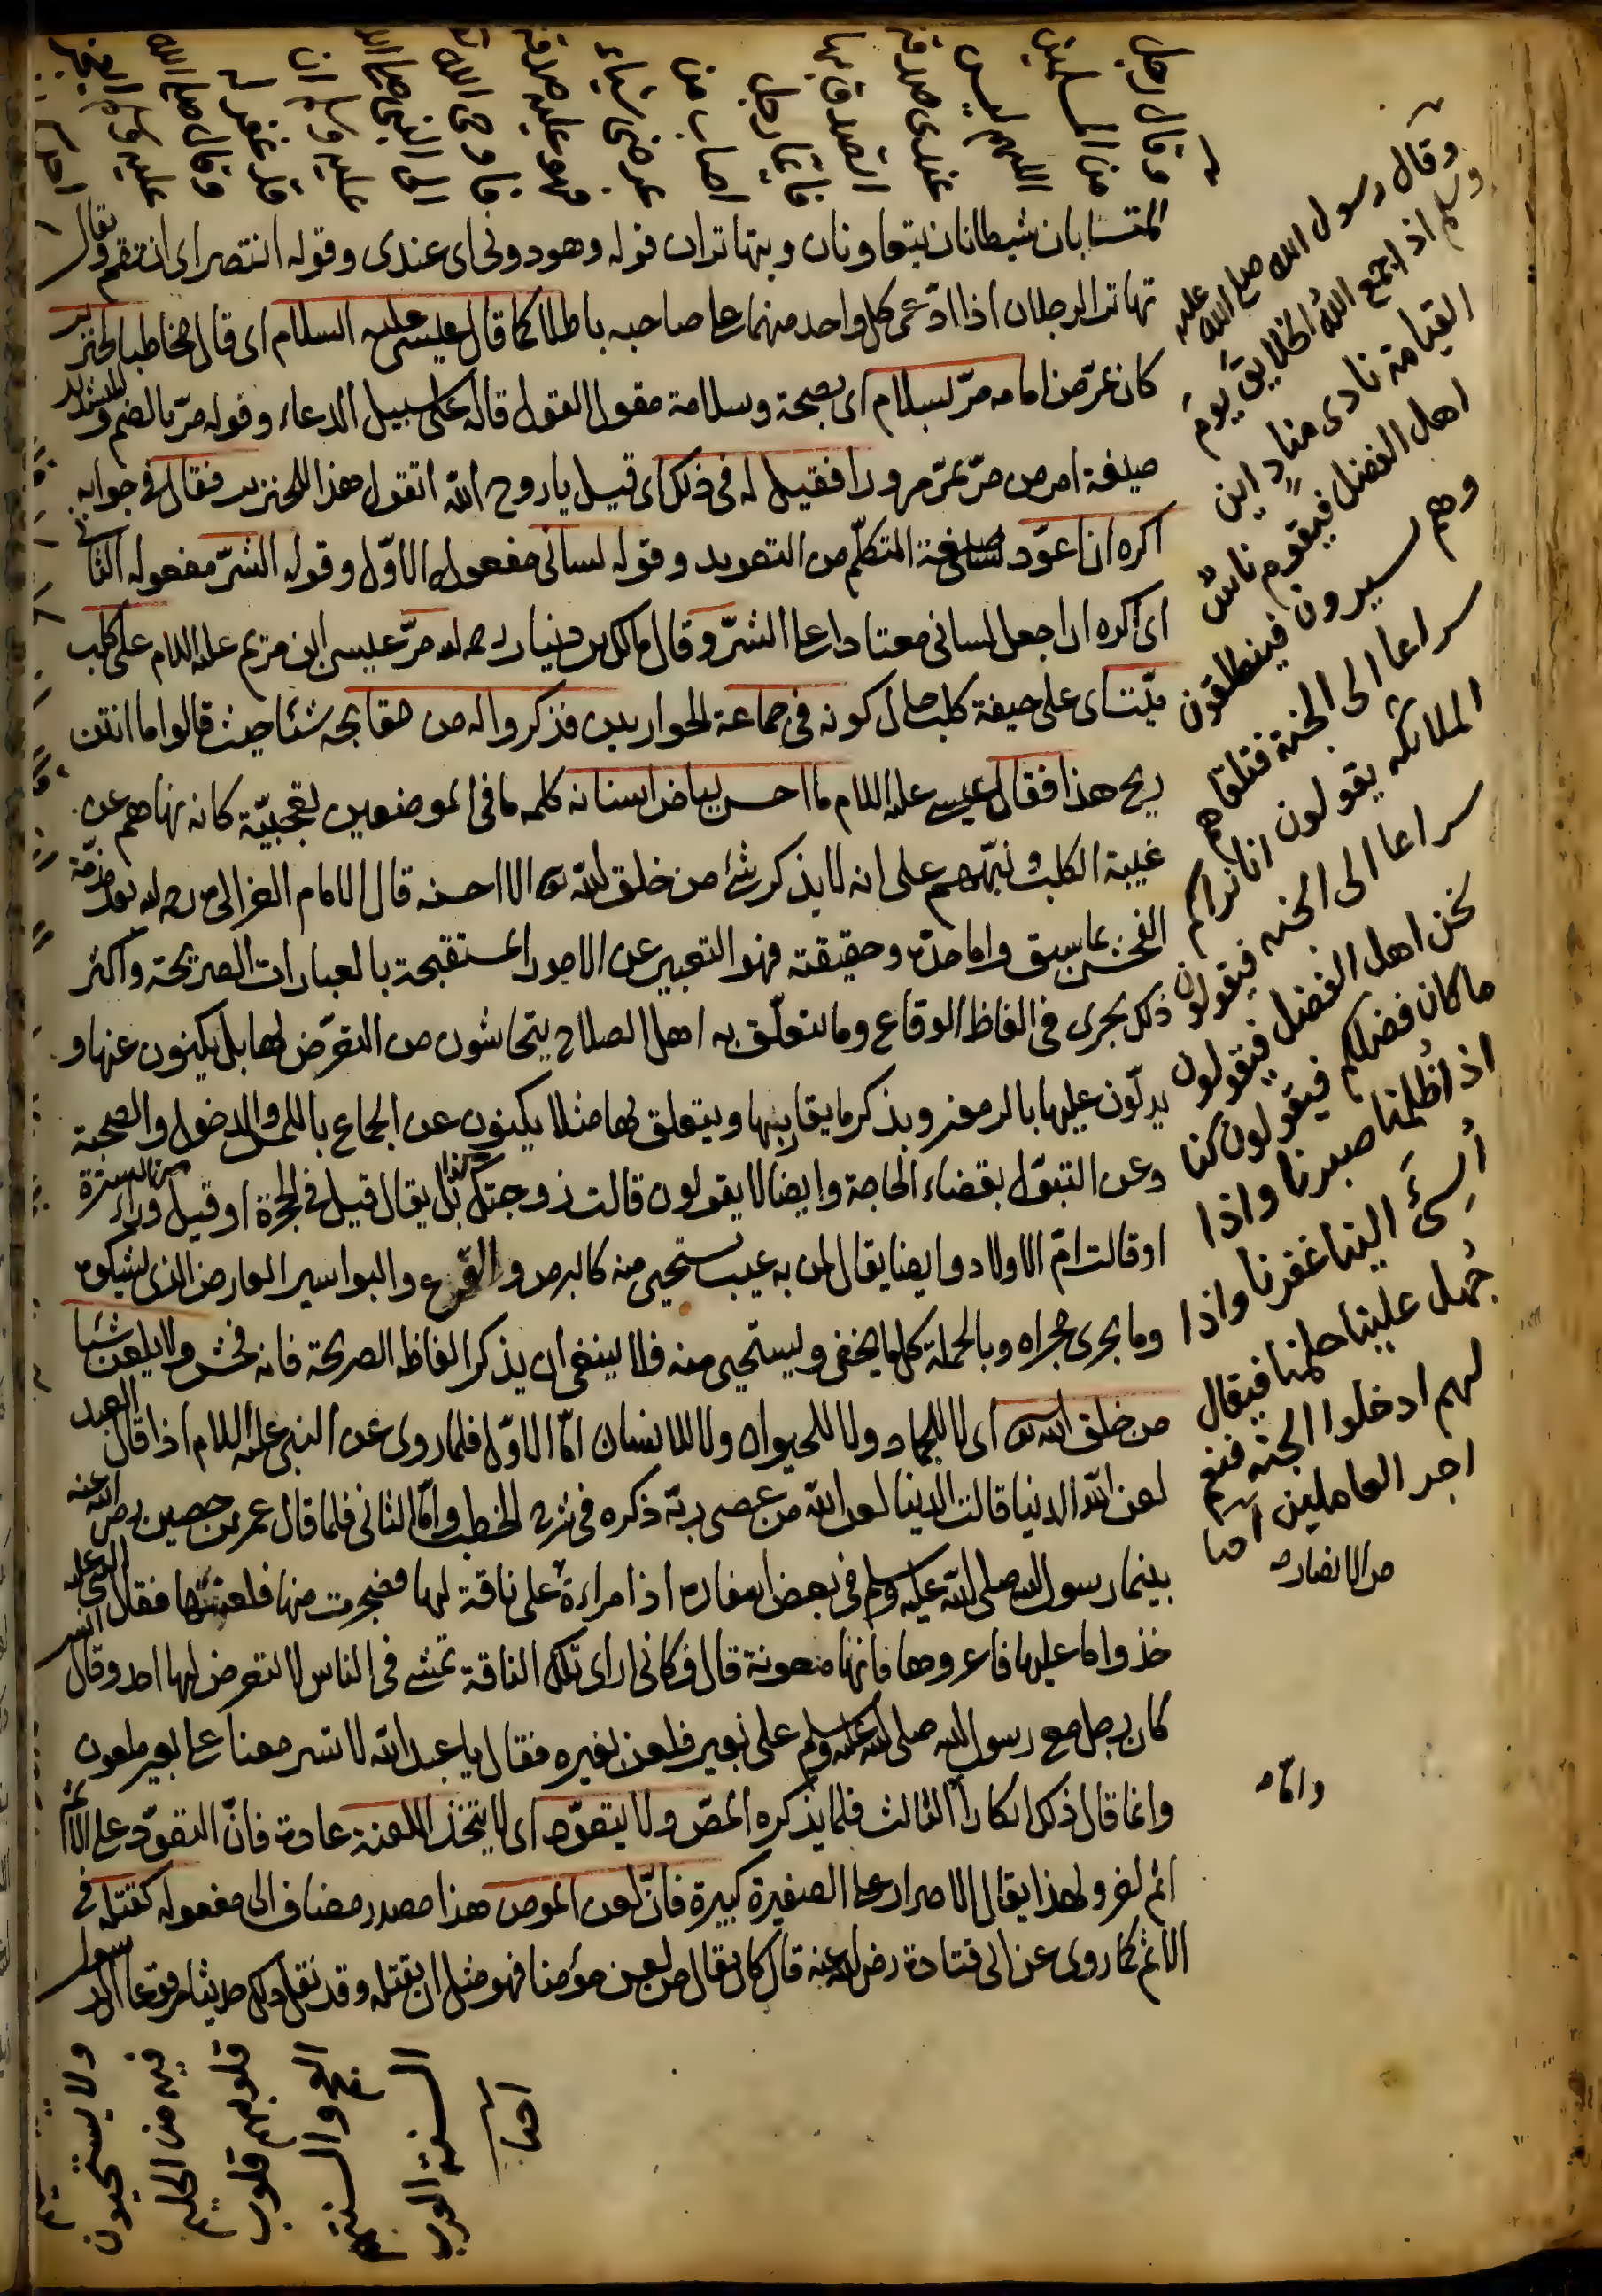 المتسابان شيطانان يتعاونان ويتهاتران قوله وهو دونى اى عندى وقوله انتصر اى انتقم ويقال
تهاتر الرجلان اذا ادّعى كل واحد منهما على صاحبه باطلا كما قال عيسى عليه السلام اى قال مخاطبا لخنزير
كان يمرّ من امامه مرّ بسلام اى بصحة وسلامة مقول القول قاله على سبيل الدعاء وقوله مرّ بالضم والتشديد
صيغة امر من مرّ يمرّ مرورا فقيل له فى ذلك اى قيل يا روح الله اتقول هذا للخنزير فقال فى جوابه
اكره ان اعوّد صيغة المتكلّم من التعويد وقوله لسانى مفعوله الاوّل وقوله الشرّ مفعوله الثانى
اى اكره ان اجعل لسانى معتادا على الشرّ وقال مالك بن دينار رحمه الله مرّ عيسى ابن مريم عليه السلام على كلب
ميّت اى على جيفة كلب حال كونه فى جماعة الحواريين فذكروا له من مقابحه شئا حيث قالوا ما انتن
ريح هذا فقال عيسى عليه السلام ما احسن بياض اسنانه كلمه ما فى الموضعين تعجبيّة كانه نهاهم عن
غيبة الكلب ونبّههم على انه لا يذكر شئ من خلق الله تعالى الا احسنه قال الامام الغزالى رحمه الله
الفحش بما سبق واما حدّه وحقيقته فهو التعبير عن الامور المستقبحة بالعبارات الصريحة واكثر
ذلك يجرى فى الفاظ الوقاع وما يتعلّق به اهل الصلاح يتحاشون من التعرّض لها بل يكنون عنها و
يدلّون عليها بالرمز وبذكر ما يقاربها ويتعلق بها مثلا يكنون عن الجماع باللمس والدخول والصحبة
وعن التبوّل بقضاء الحاجة وايضا لا يقولون قالت زوجتك كذا بل يقال قيل فى الحجرة او قيل وراء الستر
او قالت امّ الاولاد وايضا يقال لمن به عيب يستحيى منه كالبرص والقرع والبواسير العارض الذى يشكوه
وما يجرى مجراه وبالجملة كل ما يخفى ويستحيى منه فلا ينبغى ان يذكر الفاظه الصريحة فانه فحش ولا يلعن شيئا
من خلق الله تعالى اى لا للجماد ولا للحيوان ولا للانسان امّا الاوّل فلما روى عن النبى عليه السلام اذا قال العبد
لعن الله الدنيا قالت الدنيا لعن الله من عصى ربّه ذكره فى شرح الخطب وامّا الثانى فلما قال عمر بن حصين رضى الله عنه
بينما رسول الله صلى الله عليه وسلم فى بعض اسفاره اذا مراءة على ناقة لها فضجرت منها فلعنتها فقال النبى عليه
خذوا ما عليها فاعروها فانها ملعونة قال فكانى ارى تلك الناقة تمشى فى الناس لا يتعرض لها احد وقال انس
كان رجل مع رسول الله صلى الله عليه وسلم على بعير فلعن بعيره فقال يا عبد الله لا تسر معنا على بعير ملعون
وانما قال ذلك انكارا الثالث فلما يذكره المص ولا يتعوّده اى لا يتخذ اللعنة عادة فانّ التعوّد على الاثم
اثم اخر ولهذا يقال الاصرار على الصغيرة كبيرة فانّ لعن المؤمن هذا مصدر مضاف الى مفعوله كقتله فى
الاثم كما روى عن ابى قتادة رضى الله عنه قال كان يقال من لعن مؤمنا فهو مثل ان يقتله وقد نقل ذلك حديثا مرفوعا الى رسول
وقال رجل
من المسلمين
اللهم ليس
عندى صدقة
اتصدق بها
فايّما رجل
اصاب من
عرضى شياء
فهو عليه صدقة
فاوحى الله
الى النبى صلى الله
عليه وسلم ان
قد غفر له
وقال صلى الله
عليه وسلم
وقال رسول الله صلى الله عليه
وسلم اذ اجمع الله الخلايق يوم
القيامة نادى منادٍ اين
اهل الفضل فيقوم ناسٌ
وهم يسيرون فينطلقون
سراعا الى الجنة فتلقاهم
الملائكه يقولون انا نراكم
سراعا الى الجنه فيقولون
نحن اهل الفضل فيقولون
ما كان فضلكم فيقولون كنا
اذ اظلمنا صبرنا واذا
أُسئَ الينا غفرنا واذا
جُهل علينا حلمنا فيقال
لهم ادخلوا الجنه فنعم
اجر العاملين احيا
من الانضار
وامّا
ولا يستحيون
فيه من الحليم
قلوبهم قلوب
العجم والسنتهم
السنة العرب
احيا